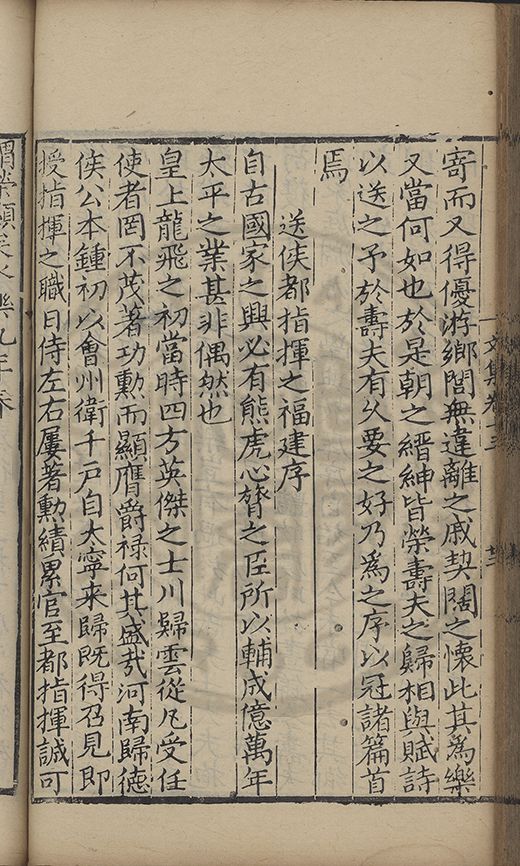 文集卷十三 廿二
寄而又得優游鄉閭無違離之戚契闊之懷此其為樂
又當何如也於是朝之縉紳皆榮壽夫之歸相與賦詩
以送之予於壽夫有久要之好乃為之序以冠諸篇首
焉
送侯都指揮之福建序
自古國家之興必有熊虎心膂之臣所以輔成億萬年
太平之業甚非偶然也
皇上龍飛之初當時四方英傑之士川歸雲從凡受任
使者罔不茂著功勳而顯膺爵祿何其盛哉河南歸德
侯公本鍾初以會州衛千戶自大寧来歸既得召見即
授指揮之職日侍左右屢著勳績累官至都指揮誠可